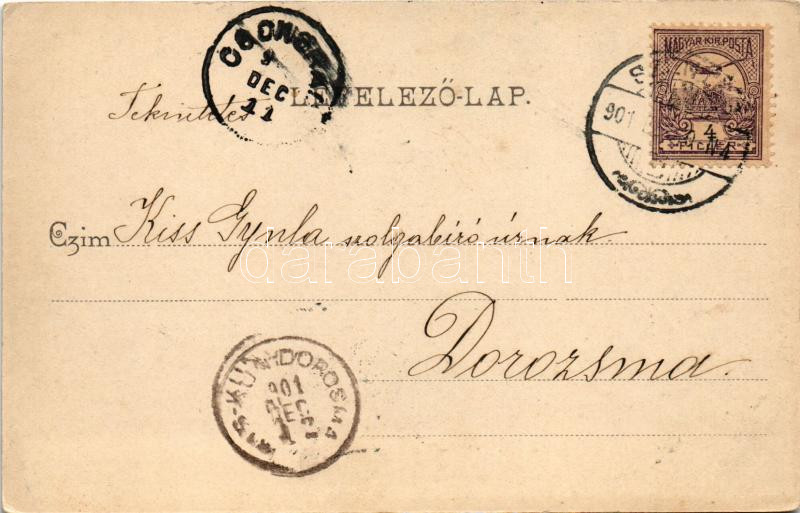 CSONGRÁD
9
DEC
11
MAGYAR KIR. POSTA
4
FILLÉR
901
LEVELEZŐ-LAP.
Tekintetes
Czim Kiss Gyula szolgabiró úrnak
darabanth
Dorozsma.
KIS-KUN-DOROSMA
901
DEC